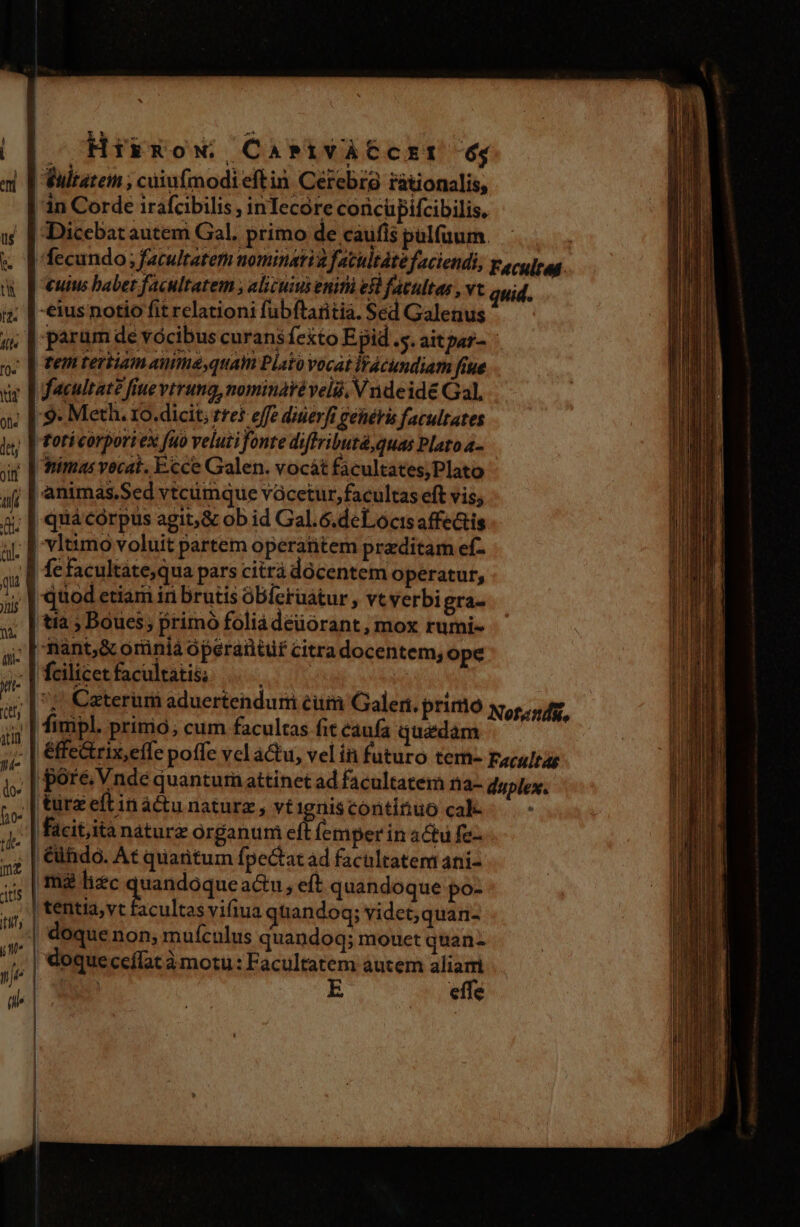 HIERON. CAPIVACCEI 65
cultatem, cuiuſmodi eſt in Cerebro rationalis,
in Corde iraſcibilis, in Iecore concupiſcibilis.
Dicebat autem Gal. primo de cauſis pulſuum
ſecundo; facultatem nominari à facultate faciendi,
Facultas
cuius habet facultatem, alicuius enim eſt facultas, vt
quid.
eius notio fit relationi ſubſtantia. Sed Galenus
parum de vocibus curans ſexto Epid .5. ait par-
tem tertiam animæ, quam Plato vocat iracundiam ſiue
facultatē ſiue vtrunq, nominare velis. Vnde idē Gal.
9. Meth. 10. dicit, tres eſſe diuerſi generis facultates
toti corpori ex ſuo veluti fonte diſtributa, quas Plato a-
nimas vocat. Ecce Galen. vocat facultates, Plato
animas. Sed vtcumque vocetur, facultas eſt vis,
qua corpus agit, & ob id Gal. 6. de Locis affectis
vltimo voluit partem operantem præditam eſ-
ſe facultate, qua pars citra docentem operatur,
quod etiam in brutis obſeruatur, vt verbi gra-
tia, Boues, primò folia deuorant, mox rumi-
nant, & omnia operantur citra docentem, ope
ſcilicet facultatis.
Cæterum aduertendum cum Galen. primo
Notandū,
ſimpl. primo, cum facultas ſit cauſa quædam
effectrix, eſſe poſſe vel actu, vel in futuro tem-
Facultas
pore. Vnde quantum attinet ad facultatem na-
duplex.
turæ eſt in actu naturæ, vt ignis continuo cale
facit, ita naturæ organum eſt ſemper in actu ſe-
cundo. At quantum ſpectat ad facultatem ani-
mæ hæc quandoque actu, eſt quandoque po-
tentia, vt facultas viſiua quandoq; videt, quan-
doque non, muſculus quandoq; mouet quan-
doque ceſſat à motu: Facultatem autem aliam
E eſſe